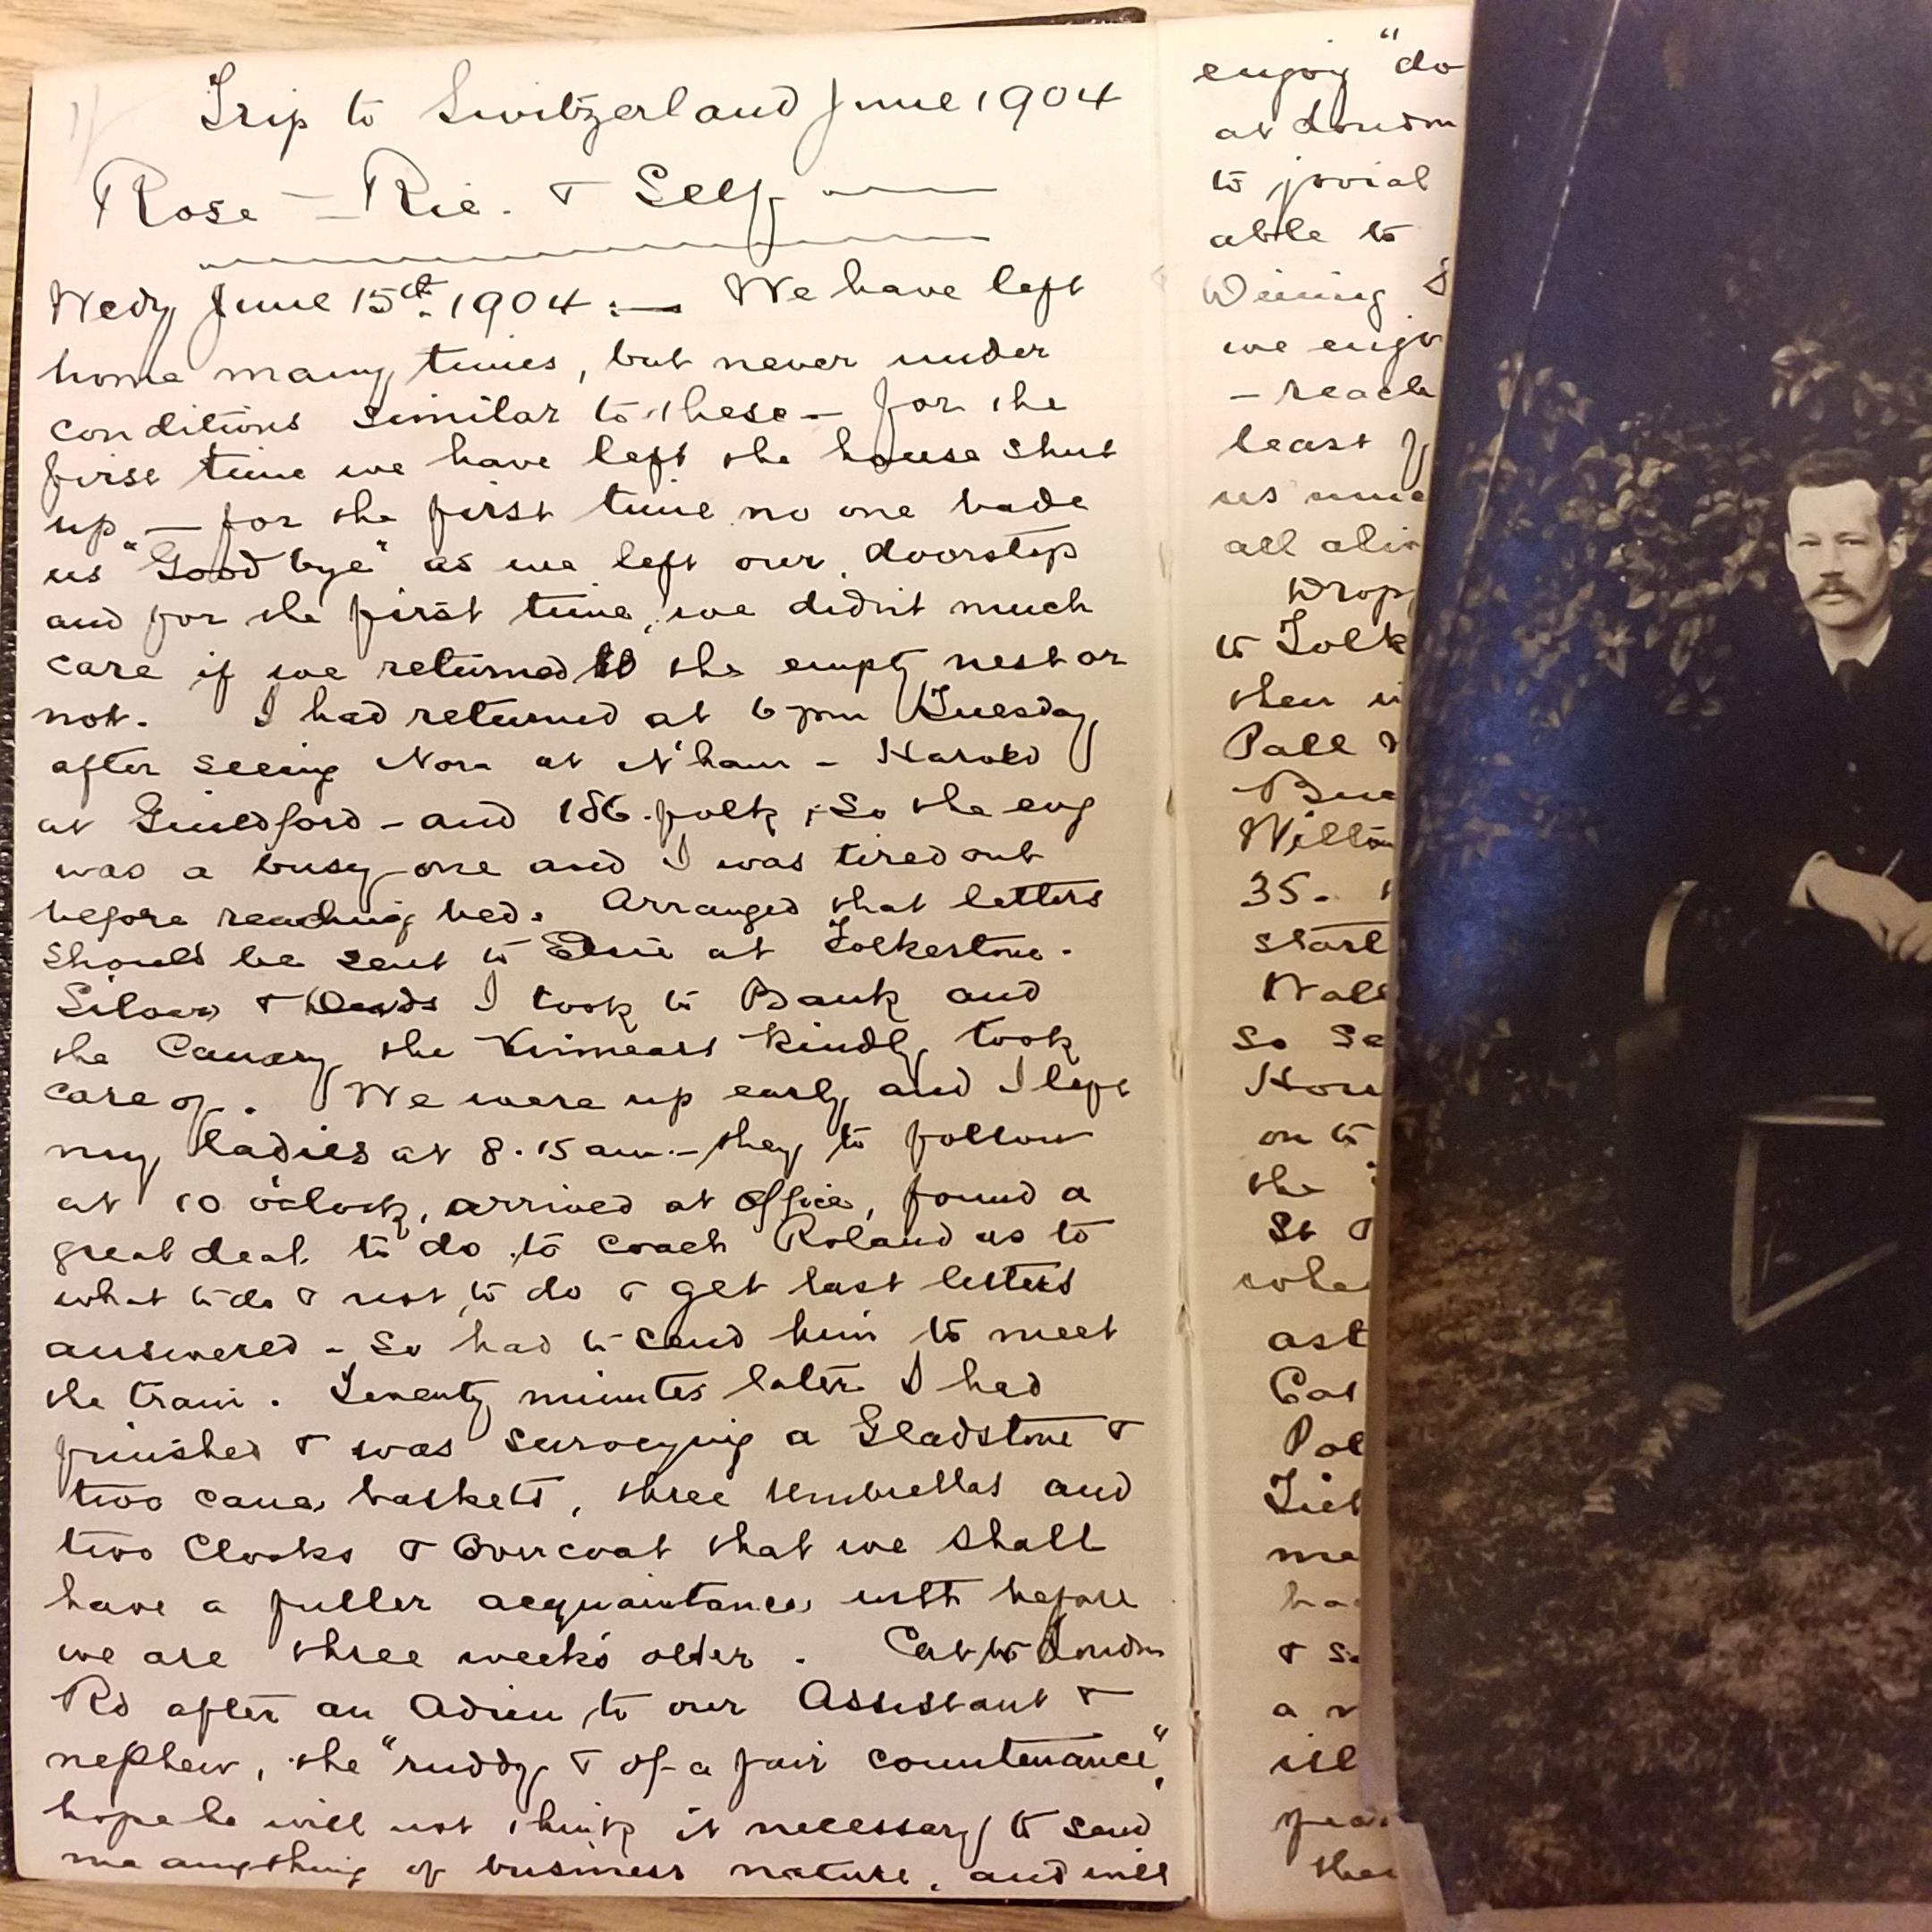 Trip to Switzerland June 1904
Rose - Rie. & Self
Wedy June 15th. 1904 :— We have left
home many times, but never under
conditions similar to these — for the
first time we have left the house shut
up — for the first time no one bade
us "Good bye" as we left our doorstep
and for the first time, we didn't much
care if we returned to the empty nest or
not. I had returned at 6 pm Tuesday
after seeing Nora at N'ham - Harold
at Guildford - and 186. folk, So the evg
was a busy one and I was tired out
before reaching bed. Arranged that letters
should be sent to Elsie at Folkestone.
Silver & Deeds I took to Bank and
the Canary the Kinnears kindly took
care of. We were up early and I left
my ladies at 8.15 am. - they to follow
at 10 o'clock, arrived at Office, found a
great deal to do to coach Roland as to
what to do & not to do & get last letters
answered - So had to send him to meet
the train. Twenty minutes later I had
finished & was surveying a Gladstone &
two cane baskets, three umbrellas and
two Cloaks & Overcoat that we shall
have a fuller acquaintance with before
we are three weeks older. Cab to London
Rd after an Adieu to our Assistant &
nephew, the "ruddy & of a fair countenance",
hope he will not think it necessary to send
me anything of business nature, and will
enjoy "do
at London
to jovial
able to
Dining
we enjo
- reach
least
us
all
Drop
to Folk
then
Pall
Wilton
35.
start
Wall
so se
on to
the
St